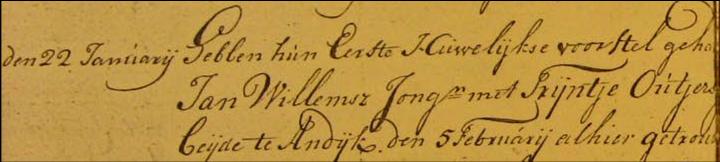 den 22 Januarij Heblen hún Eerste Húwelijkse voorstel geha
Jan Willemsz Jongmn met Trijntje Oútjers
beijde te Andijk. den 5 Februarij alhier getrouw